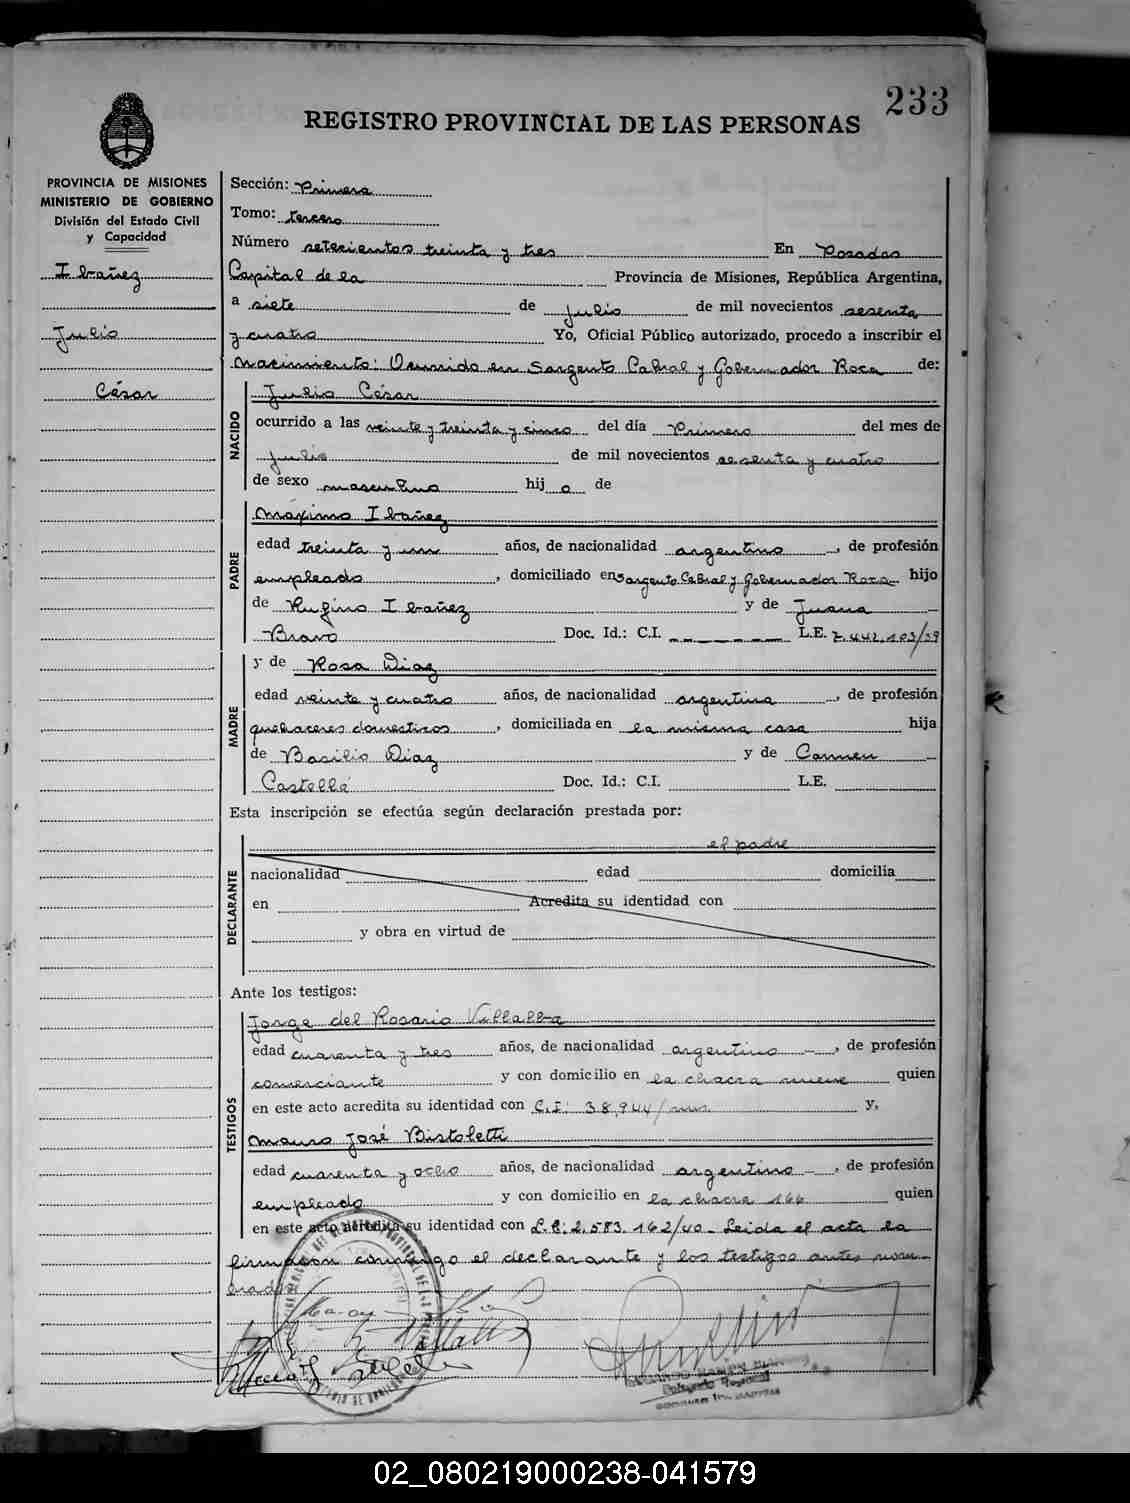 233
REGISTRO PROVINCIAL DE LAS PERSONAS
PROVINCIA DE MISIONES
MINISTERIO DE GOBIERNO
División del Estado Civil
y Capacidad
Ibañez
Julio
César
Sección: Primera
Tomo: tercero
Número setecientos treinta y tres En Posadas
Capital de la Provincia de Misiones, República Argentina,
a siete de julio de mil novecientos sesenta
y cuatro Yo, Oficial Público autorizado, procedo a inscribir el
nacimiento: Ocurrido en Sargento Cabral y Gobernador Roca de:
NACIDO
Julio César
ocurrido a las veinte y treinta y cinco del día Primero del mes de
julio de mil novecientos sesenta y cuatro
de sexo masculino hijo de
PADRE
Máximo Ibañez
edad treinta y un años, de nacionalidad argentino, de profesión
empleado, domiciliado en Sargento Cabral y Gobernador Roca hijo
de Rufino Ibañez y de Juana
Bravo Doc. Id.: C.I. - - - - - - - L.E. 7.442.103/59
MADRE
y de Rosa Diaz
edad veinte y cuatro años, de nacionalidad argentina, de profesión
quehaceres domesticos, domiciliada en la misma casa hija
de Basilio Diaz y de Carmen
Castellá Doc. Id.: C.I. L.E.
Esta inscripción se efectúa según declaración prestada por:
DECLARANTE
el padre
nacionalidad edad domicilia
en Acredita su identidad con
y obra en virtud de
Ante los testigos:
TESTIGOS
Jorge del Rosario Villalba
edad cuarenta y tres años, de nacionalidad argentino, de profesión
comerciante y con domicilio en la chacra nueve quien
en este acto acredita su identidad con C.I: 38,944/mns. y,
Mauro José Bistoletti
edad cuarenta y ocho años, de nacionalidad argentino, de profesión
empleado y con domicilio en la chacra 166 quien
en este acto acredita su identidad con L.E: 2.583.162/40_ Leida el acta la
firmaron conmigo el declarante y los testigos antes nom-
brados
Delegado Regional
02_080219000238-041579